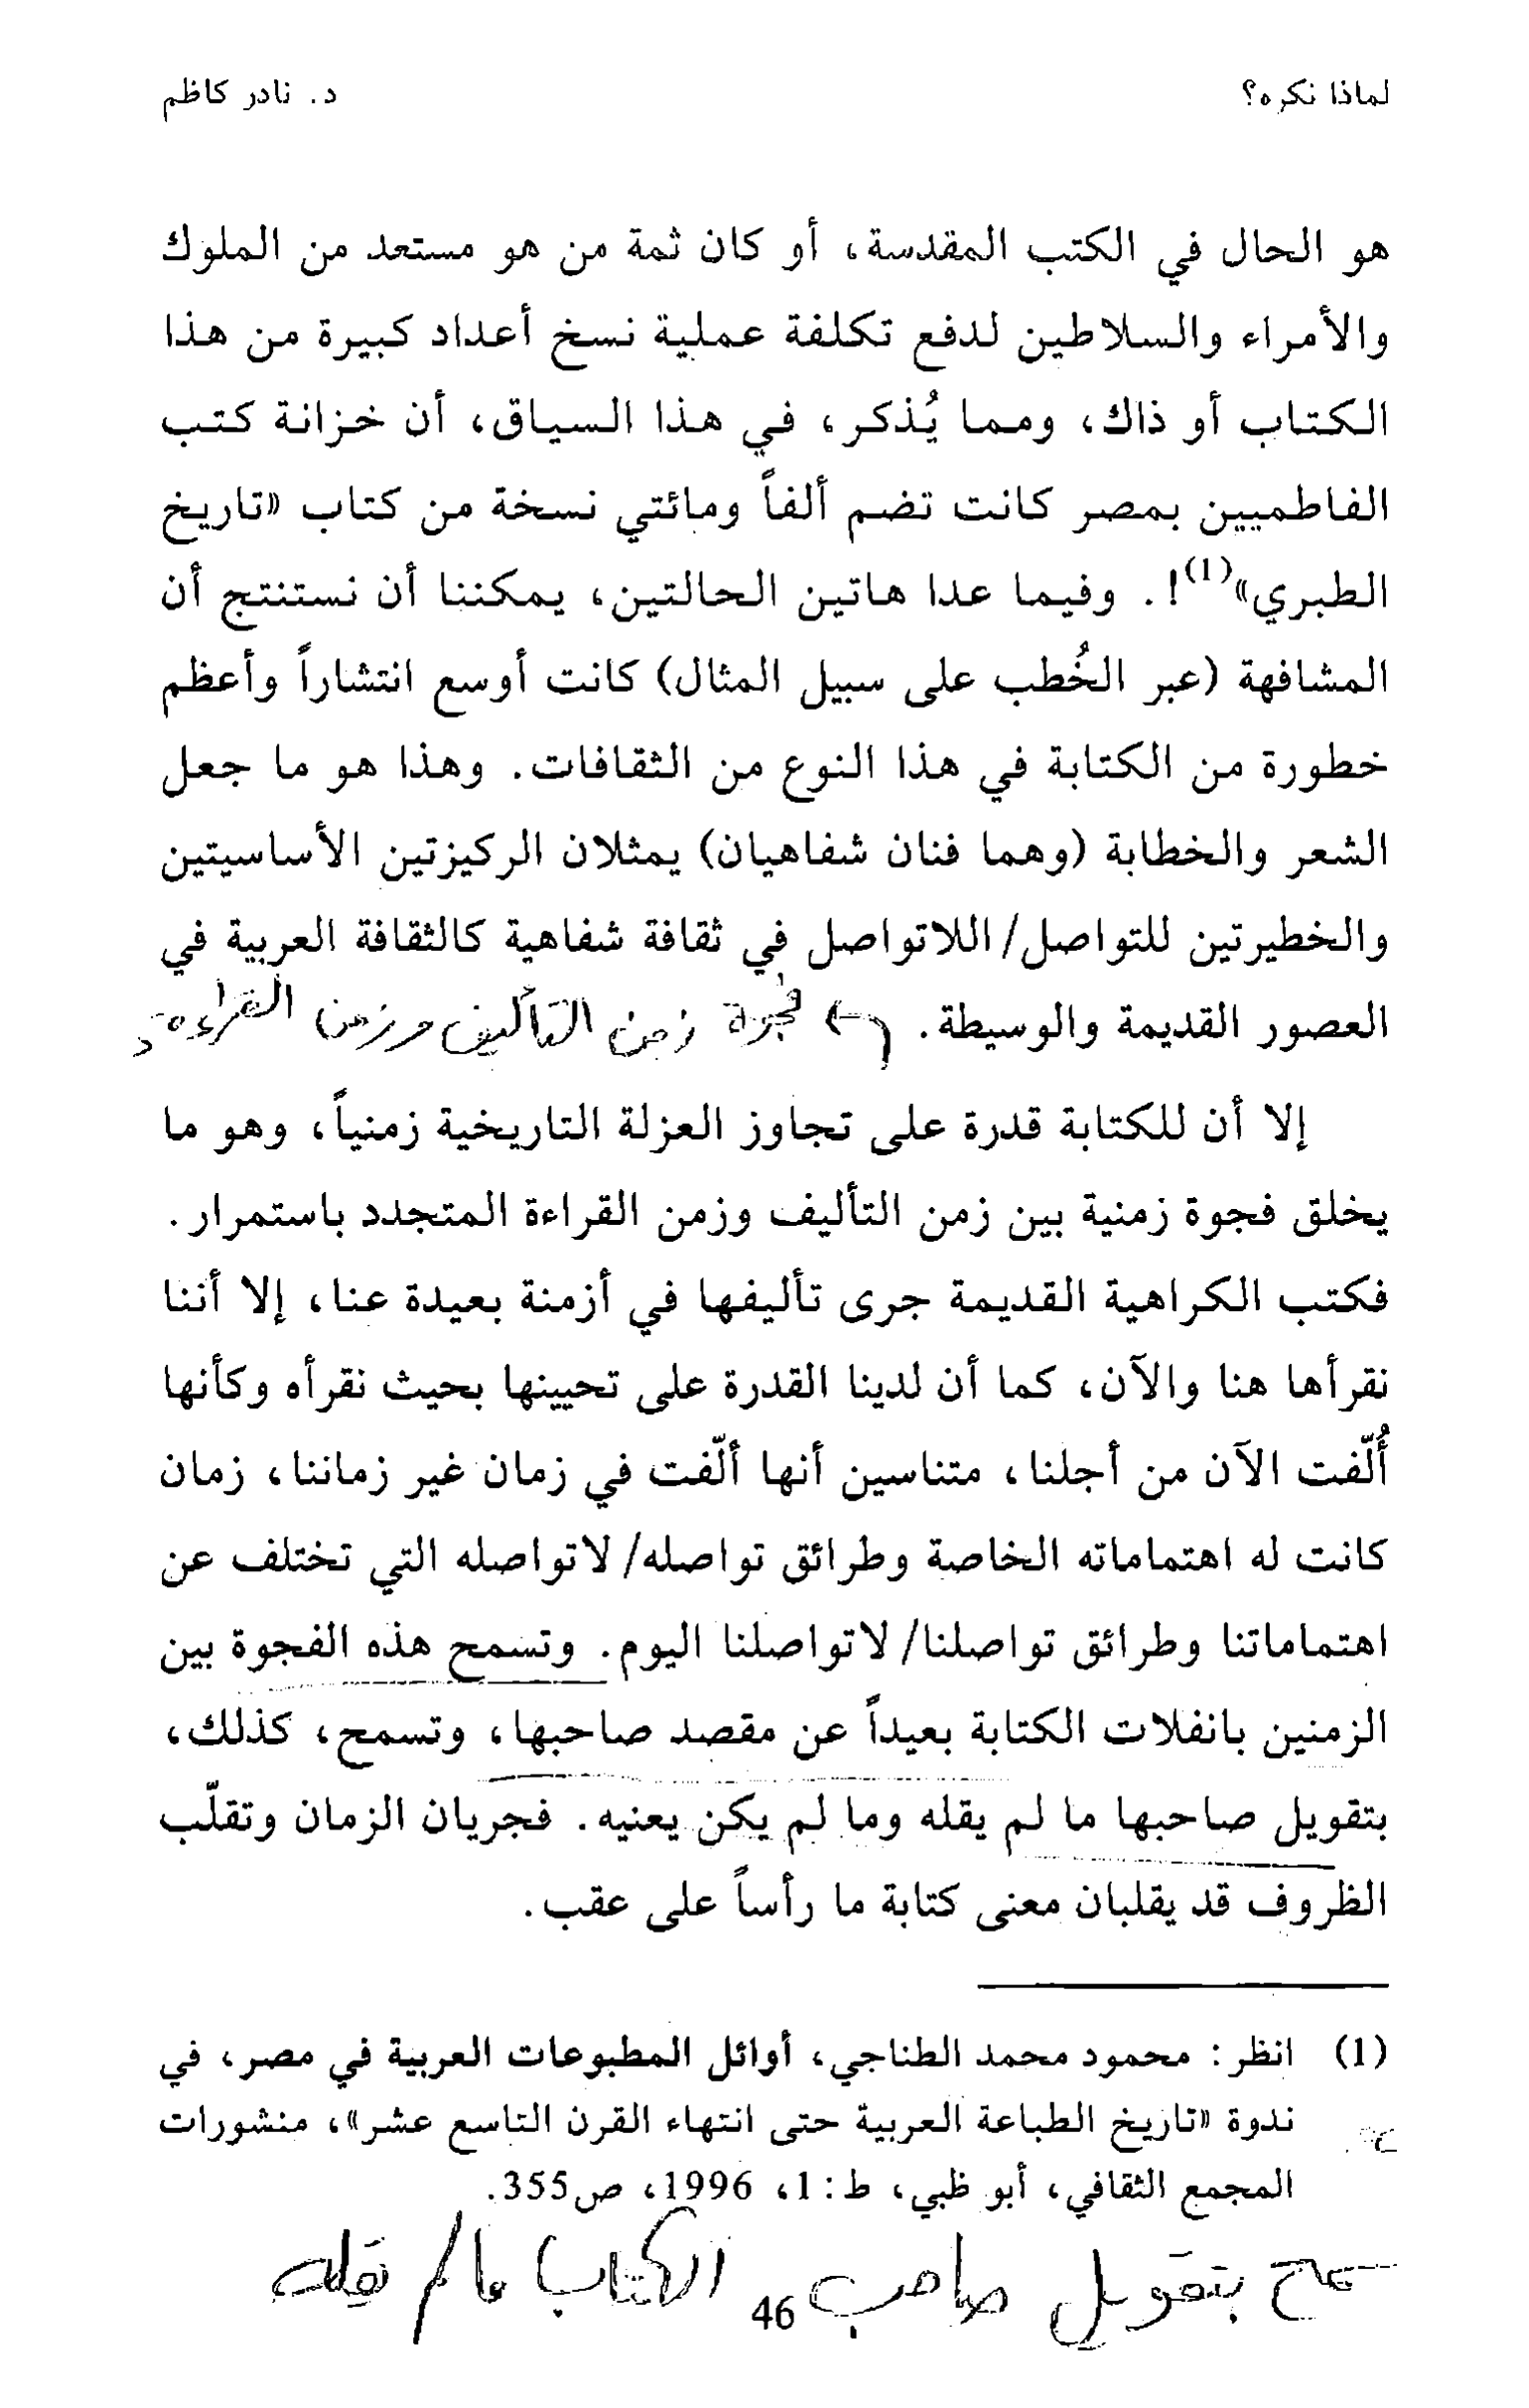 لماذا نكره؟ د. نادر كاظم
هو الحال في الكتب المقدسة، أو كان ثمة من هو مستعد من الملوك
والأمراء والسلاطين لدفع تكلفة عملية نسخ أعداد كبيرة من هذا
الكتاب أو ذاك، ومما يُذكر، في هذا السياق، أن خزانة كتب
الفاطميين بمصر كانت تضم ألفاً ومائتي نسخة من كتاب «تاريخ
الطبري»(1)!. وفيما عدا هاتين الحالتين، يمكننا أن نستنتج أن
المشافهة (عبر الخُطب على سبيل المثال) كانت أوسع انتشاراً وأعظم
خطورة من الكتابة في هذا النوع من الثقافات. وهذا هو ما جعل
الشعر والخطابة (وهما فنان شفاهيان) يمثلان الركيزتين الأساسيتين
والخطيرتين للتواصل/اللاتواصل في ثقافة شفاهية كالثقافة العربية في
العصور القديمة والوسيطة. فجوة زمن التأليف وزمن القراءة
إلا أن للكتابة قدرة على تجاوز العزلة التاريخية زمنياً، وهو ما
يخلق فجوة زمنية بين زمن التأليف وزمن القراءة المتجدد باستمرار.
فكتب الكراهية القديمة جرى تأليفها في أزمنة بعيدة عنا، إلا أننا
نقرأها هنا والآن، كما أن لدينا القدرة على تحيينها بحيث نقرأه وكأنها
أُلّفت الآن من أجلنا، متناسين أنها ألّفت في زمان غير زماننا، زمان
كانت له اهتماماته الخاصة وطرائق تواصله/لاتواصله التي تختلف عن
اهتماماتنا وطرائق تواصلنا/لاتواصلنا اليوم. وتسمح هذه الفجوة بين
الزمنين بانفلات الكتابة بعيداً عن مقصد صاحبها، وتسمح، كذلك،
بتقويل صاحبها ما لم يقله وما لم يكن يعنيه. فجريان الزمان وتقلّب
الظروف قد يقلبان معنى كتابة ما رأساً على عقب.
(1) انظر: محمود محمد الطناجي، أوائل المطبوعات العربية في مصر، في
ندوة «تاريخ الطباعة العربية حتى انتهاء القرن التاسع عشر»، منشورات
المجمع الثقافي، أبو ظبي، ط:1، 1996، ص355.
بتقويل صاحب الكتاب ما لم يقله
46